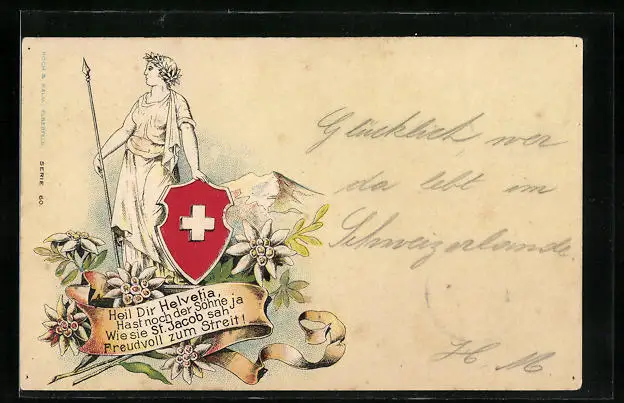 SERIE 60
Heil Dir Helvetia,
Hast noch der Söhne ja
Wie sie St. Jacob sah,
Freudvoll zum Streit!
Glücklich wer
da lebt im
Schweizerlande.
H. M.